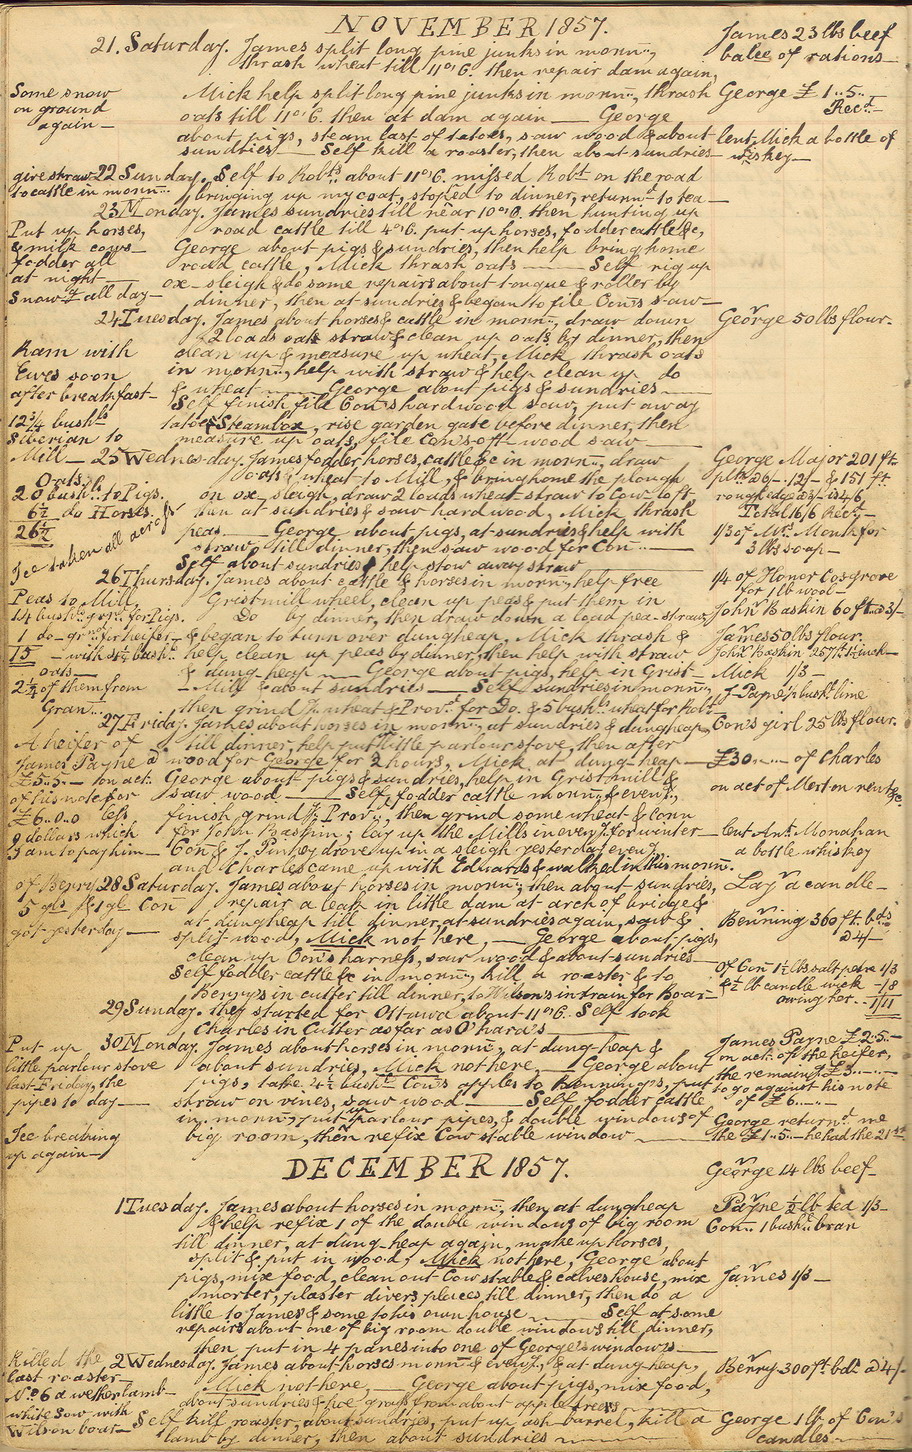 NOVEMBER 1857.
21. Saturday. James split long pine junks in morn:,
thrash wheat till 11 o' 6. then repair dam again,
James 23 lbs beef
balce of rations
Some snow
on ground
again—
Mick help split long pine junks in morn:, thrash
oats till 11 o' 6. then at dam again — George
about pigs, steam last of tatoes, saw wood & about
sundries — Self kill a roaster, then about sundries—
George £ 1..5..
Recd—
lent Mick a bottle of
wiskey—
give straw
to cattle in morn:
22 Sunday. Self to Robts. about 11 o' 6. missed Robt on the road
bringing up my coat, stoped to dinner, returnd to tea—
23 Monday. James sundries till near 10 o' 6. then hunting up
road cattle till 4 o' 6. put up horses, fodder cattle &c,
George about pigs & sundries, then help bring home
road cattle, Mick thrash oats — Self rig up
ox-sleigh & do some repairs about tongue & roller by
dinner, then at sundries & began to file Con's saw—
Put up horses,
& milk cows—
fodder all
at night—
Snowd all day—
24 Tuesday. James about horses & cattle in morn:, draw down
2 loads oat straw & clean up oats by dinner, then
clean up & measure up wheat, Mick thrash oats
in morn:, help with straw & help clean up do
& wheat — George about pigs & sundries—
Self finish file Con's hardwood saw, put away
tatoe Steambox, rise garden gate before dinner, then
measure up oats, file Con's soft wood saw—
George 50 lbs flour.
Ram with
Ewes soon
after breakfast—
12 3/4 bushls
Siberian to
Mill—
25 Wednesday. James fodder horses, cattle &c in morn:, draw
oats & wheat to Mill, & bring home the plough
on ox-sleigh, draw 2 loads wheat straw to Cow loft,
then at sundries & saw hard wood, Mick thrash
peas — George about pigs, at sundries & help with
straw till dinner, then saw wood for Con—
Self about sundries & help stow away straw
Oats,
20 bushls to Pigs.
6 1/2 do Horses.
26 1/2
Ice taken all across
George Major 201 ft
& 151 ft
rough edge
Total 16/6 Recd—
1/3 of Mrs Monk for
3 lbs soap—
26 Thursday. James about cattle & horses in morn:, help free
Gristmill wheel, clean up pegs & put them in
Do by dinner, then draw down a load pea-straw,
& began to turn over dungheap, Mick thrash &
help clean up peas by dinner, then help with straw
& dung-heap — George about pigs, help in Grist-
-Mill & about sundries — Self sundries in morn:,
then grind wheat & Provr for Do. & 5 bushls wheat for Robt
Peas to Mill
14 bushls for Pigs.
1 do for heifer—
15 — with 4 1/2 bushls
oats—
2 1/4 of them from
Gran..
1/4 of Honor Cosgrove
for 1 lb wool—
John Baskin 60 ft a 3/-
James 50 lbs flour.
John Baskin 257 ft 1 1/2 inch—
Mick 1/3—
J. Payne 1/2 bushl lime
27 Friday. James about horses in morn:, at sundries & dungheap,
till dinner, help put little parlour stove, then after
wood for George for 2 hours, Mick at dung-heap—
George about pigs & sundries, help in Grist mill &
saw wood — Self, fodder cattle morn: & eveng,
finish grindg Prov:, then grind some wheat & Corn
for John Baskin; lay up the Mills in every for winter—
Con & J. Pinkey drove up in a sleigh yesterday eveng
and Charles came up with Edwards & walked in this morn:.
A heifer of
James Payne a
£5..5— on act.
of his note for
£6..0..0 less
9 dollars which
I am to pay him—
Con's girl 25 lbs flour.
£30..—..— of Charles
on act of Merton rent &c.
lent Ant. Monahan
a bottle whiskey
of Berry
5 gls & 1 gl Con
got yesterday—
28 Saturday. James about horses in morn:, then about sundries,
repair a leak in little dam at arch of bridge &
at dungheap till dinner, at sundries again, saw &
split wood, Mick not here,— George about pigs,
clean up Con's harness, saw wood & about sundries—
Self fodder cattle &c in morn:, kill a roaster & to
Berry's in cutter till dinner, to Wilson's in train for Boar—
Layd a candle—
Benning 360 ft bds
a 4/—
Of Con 1 1/2 lbs saltpetre 1/3
& 1/2 lb candle wick —/8
owing her.. 1/11
29 Sunday. they started for Ottawa about 11 o' 6. Self took
Charles in Cutter as far as O'hara's
30 Monday. James about horses in morn:, at dung-heap &
about sundries, Mick not here,— George about
pigs, take 4 1/2 bushls Con's apples to Benning's, put
straw on vines, saw wood — Self fodder cattle
in morn:, put up parlour pipes, & double windows of
big room, then refix Cow stable window
Put up
little parlour stove
last Friday, the
pipes to day—
Ice breaking
up again—
James Payne £ 2..5..—
on act. of the heifer,
the remaing £3..—..—
to go against his note
of £6..—..—
George returnd me
the £1..5..— he had the 21st
DECEMBER 1857.
George 14 lbs beef—
1 Tuesday. James about horses in morn:, then at dungheap
& help refix 1 of the double windows of big room
till dinner, at dung-heap again, make up horses,
split & put in wood, Mick not here, George about
pigs, mix food, clean out Cow stable & calves house, mix
morter, plaster divers places, till dinner, then do a
little to James' & some to his own house — Self at some
repairs about one of big room double windows till dinner,
then put in 4 panes into one of George's windows—
Payne 1/2 lb tea 1/3—
Con.. 1 bushl bran
James 1/3—
Killed the
last roaster
No 6 a wether lamb—
white Sow with
Wilson boar—
2 Wednesday. James about horses morn: & eveng, & at dung-heap,
Mick not here,— George about pigs, mix food,
about sundries & hoe grass from about apple trees
Self kill roaster, about sundries, put up ash barrel, kill a
lamb by dinner, then about sundries
Berry 300 ft bds a 4/-
George 1 lb of Con's
candles—